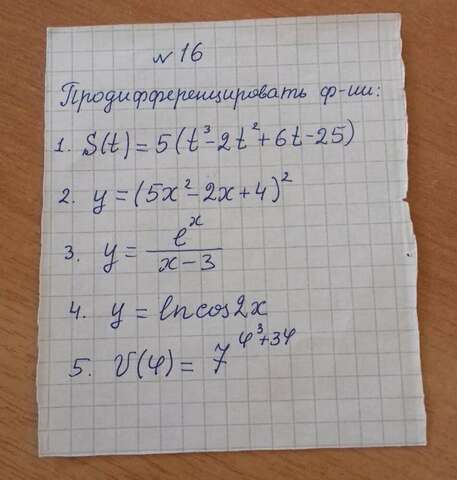 № 16
Продифференцировать ф-ии:
1. S(t) = 5(t³-2t²+6t-25)
2. y = (5x²-2x+4)²
3. y = e^x / (x-3)
4. y = ln cos2x
5. V(φ) = 7^(φ³+3φ)